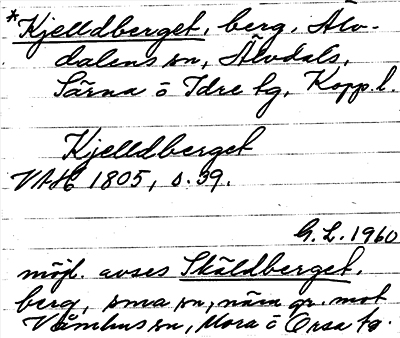 *Kjelldberget, berg, Älv-
dalens sn, Älvdals,
Särna o Idre tg, Kopp.l.
Kjelldberget
VAH 1805, s. 39.
G.L. 1960
möjl. avses Skäldberget,
berg, sma sn, nära gr. mot
Våmhus sn, Mora o Orsa tg.